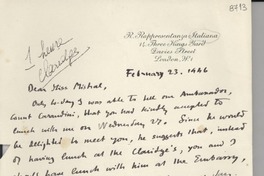 8713
R. Rappresentanza Italiana
14, Three Kings Yard
Davies Street
London. W.1
February 23. 1946
Dear Miss Mistral,
Only to-day I was able to tell our Ambassador,
Count Carandini, that you had kindly accepted to
lunch with me on Wednesday 27. Since he would
be delighted to meet you, he suggests that, instead
of having lunch at the Claridge's, you and I
should have lunch with him at the Embassy,